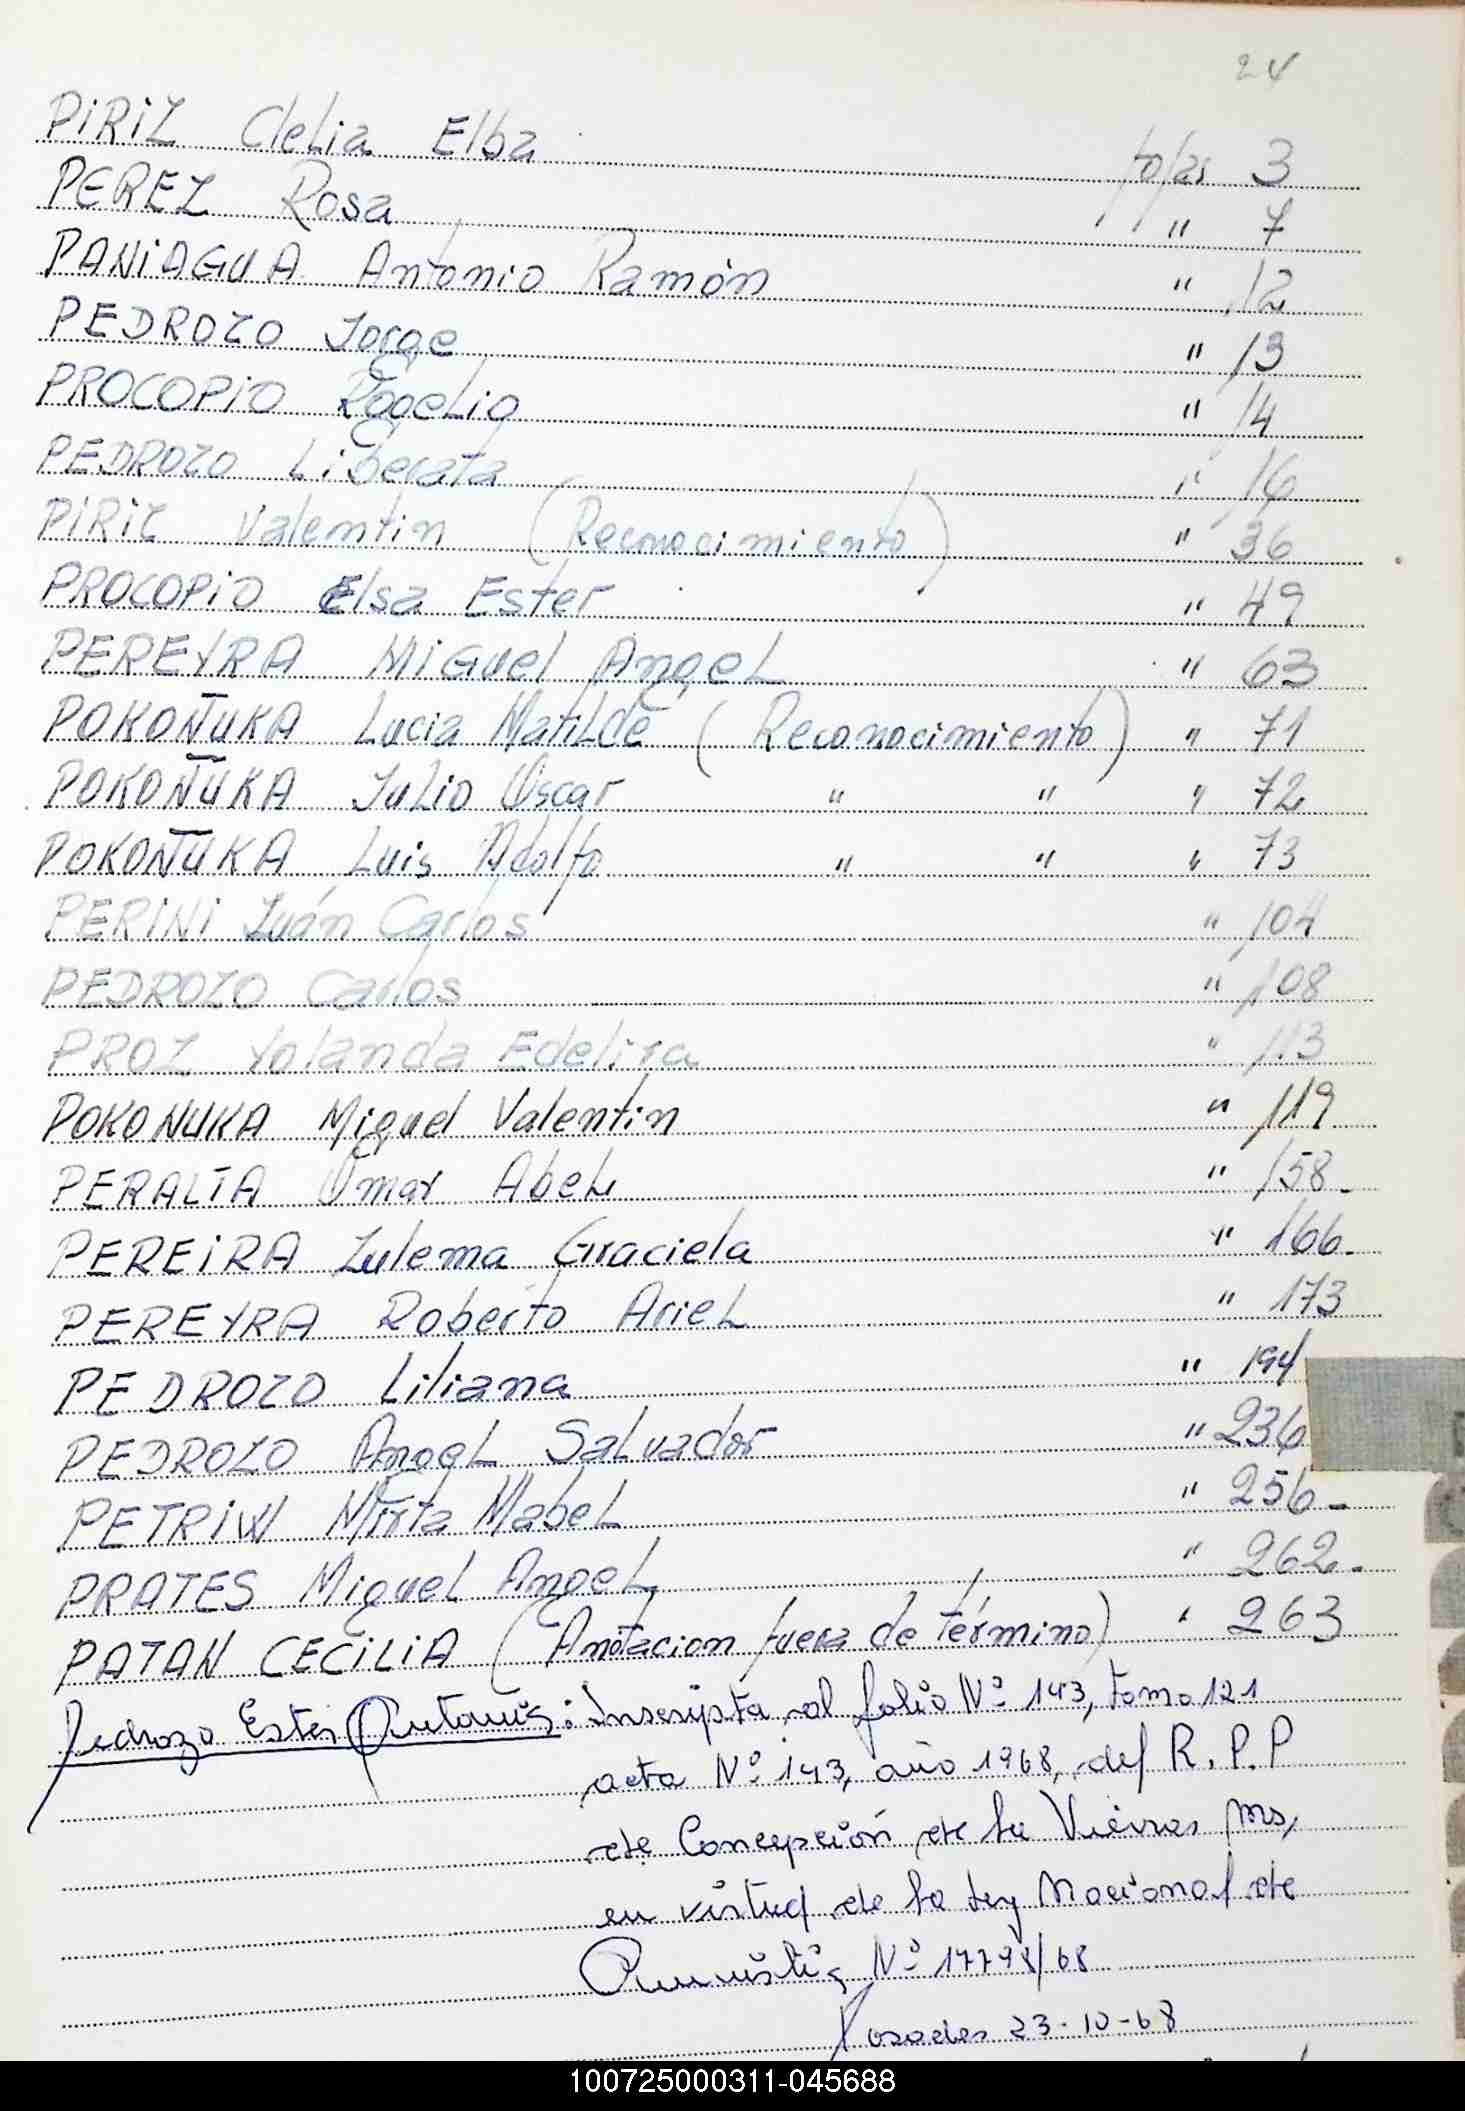 24
PiRiZ Clelia Elba fojas 3
PEREZ Rosa " 7
PANiAGUA Antonio Ramón " 12
PEDROZO Jorge " 13
PROCOPiO Rogelio " 14
PEDROZO Liberata " 16
PiRiZ Valentin (Reconocimiento) " 36
PROCOPiO Elsa Ester " 49
PEREYRA MiGuel AngeL " 63
POKOÑUKA Lucia Matilde (Reconocimiento) " 71
POKOÑUKA Julio Oscar " " " 72
POKOÑUKA Luis Adolfo " " " 73
PERiNi Juán Carlos " 104
PEDROZO Carlos " 108
PROZ Yolanda Edelira " 113
POKONUKA Miguel Valentin " 119
PERALTA Omar AbeL " 158-
PEREiRA Zulema Graciela " 166-
PEREYRA Roberto ArieL " 173
PEDROZO Liliana " 194
PEDROZO AngeL Salvador " 236
PETRiW Mirta MabeL " 256-
PRATES Miguel AngeL " 262-
PATAN CECiLiA (Anotacion fuera de término) " 263
Pedrozo Ester Antonia: Inscripta al folio Nº 143, tomo 121
acta Nº 143, año 1968, del R.P.P
de Concepción de la Sierra Ms,
en virtud de la Ley Nacional de
Amnistia Nº 17798/68
Posadas 23-10-68
100725000311-045688